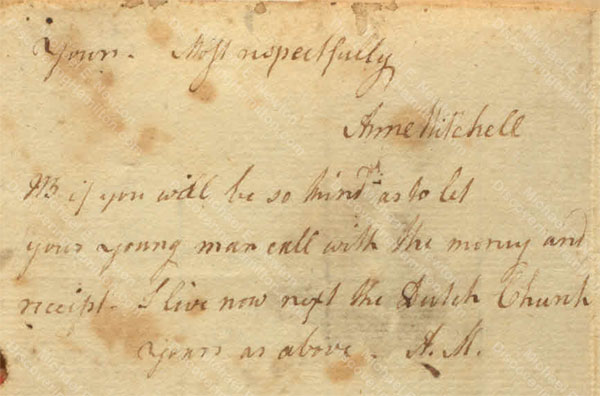 Yours. Most respectfully
Anne Mitchell
NB if you will be so kind as to let
your young man call with the money and
receipt. I live now next the Dutch Church
Yours as above. A. M.